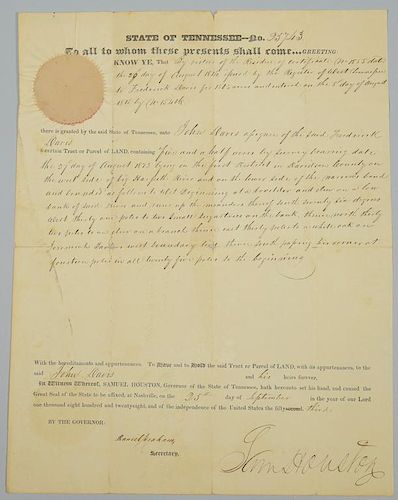 STATE OF TENNESSEE—No. 25743
To all to whom these presents shall come...GREETING:
KNOW YE, That By virtue of the Residue of Certificate No 1555 dated
the 29 day of August 1814 issued by the Register of West Tennessee
to Frederick Davis for acres and entered on the 8 day of August
1816 by No 15416
there is granted by the said State of Tennessee, unto John Davis assignee of the said Frederick
Davis
a certain Tract or Parcel of LAND, containing Five and a half acres by survey bearing date
the 27 day of August 1823 lying in the first District in Davidson County on
the west side of big Harpeth River and on the lower side of the narrows bend
and bounded as follows to wit Beginning at a boxelder and elm on a low
bank of said River and runs up the meanders thereof south twenty six degrees
West thirty one poles to two small Sugartrees on the bank thence north thirty
two poles to an elm on a branch thence east thirty poles to a white oak on
Jeremiah west boundary line thence south passing his corner at
fourteen poles in all twenty five poles to the Beginning
With the hereditaments and appurtenances. To Have and to Hold the said Tract or Parcel of LAND, with its appurtenances, to the
said John Davis and his heirs forever.
In Witness Whereof, SAMUEL HOUSTON, Governor of the State of Tennessee, hath hereunto set his hand, and caused the
Great Seal of the State to be affixed, at Nashville, on the 25th day of September in the year of our Lord
one thousand eight hundred and twenty-eight, and of the independence of the United States the fifty-second third.
BY THE GOVERNOR.
Daniel Graham,
Secretary.
Sam Houston